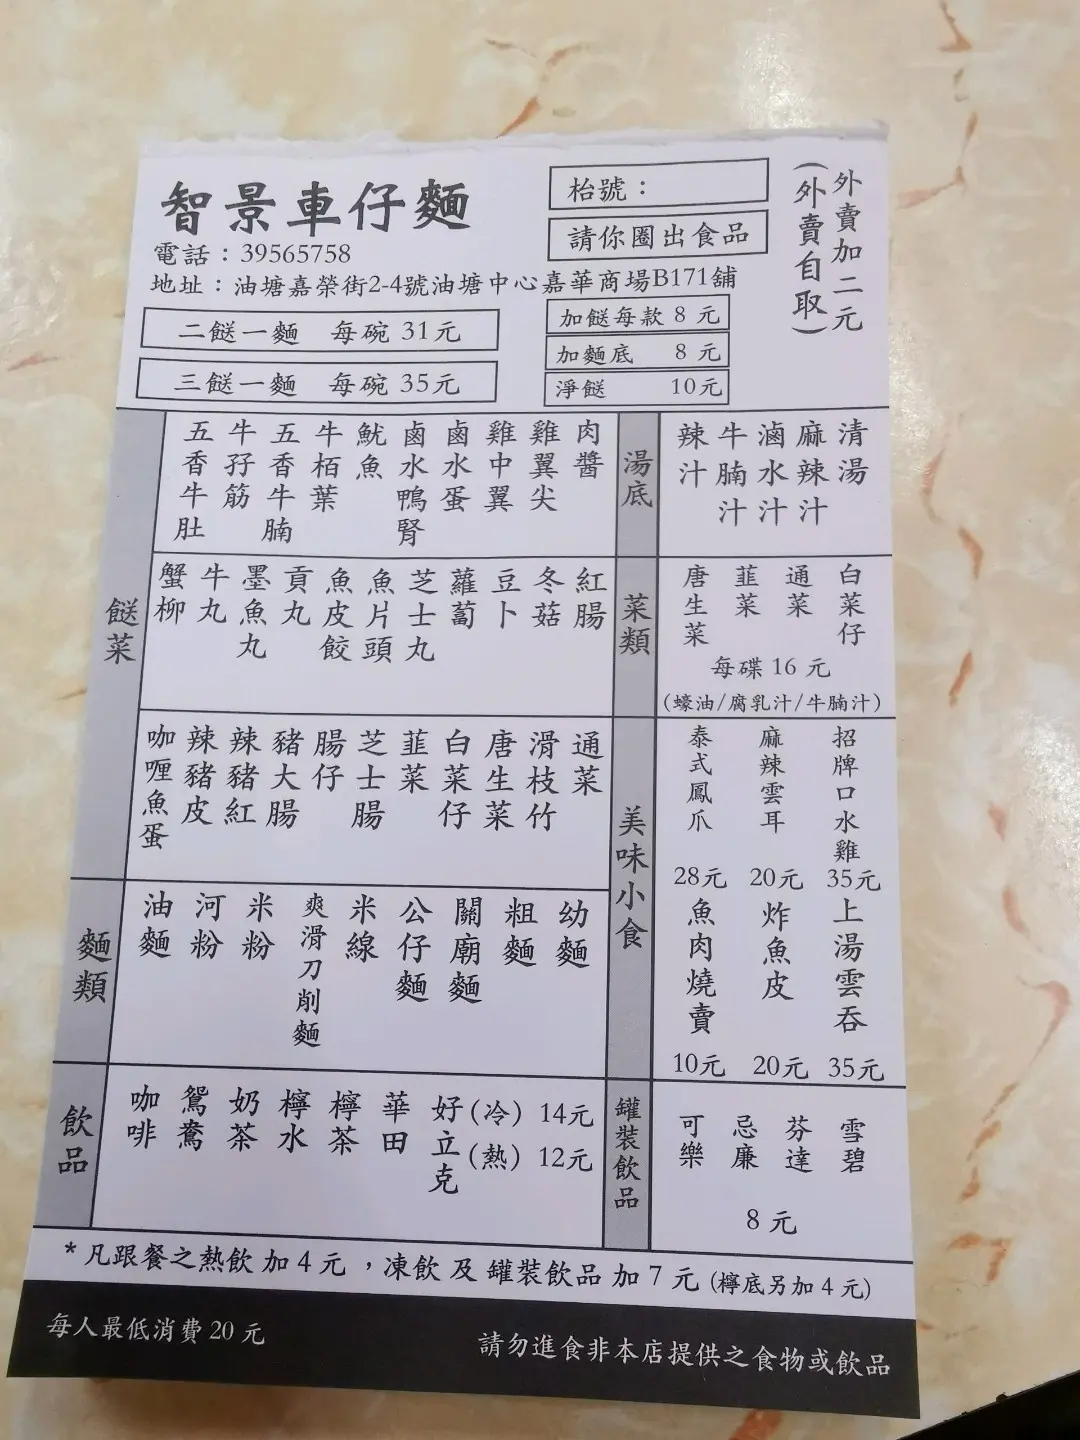 智景車仔麵
電話：39565758
地址：油塘嘉榮街2-4號油塘中心嘉華商場B171舖
枱號：
請你圈出食品
外賣加二元
(外賣自取)
二餸一麵 每碗 31元
三餸一麵 每碗 35元
加餸每款 8 元
加麵底 8 元
淨餸 10元
餸菜
五香牛肚
牛孖筋
五香牛腩
牛栢葉
魷魚
鹵水鴨腎
鹵水蛋
雞中翼
雞翼尖
肉醬
蟹柳
牛丸
墨魚丸
貢丸
魚皮餃
魚片頭
芝士丸
蘿蔔
豆卜
冬菇
紅腸
咖喱魚蛋
辣豬皮
辣豬紅
豬大腸
腸仔
芝士腸
韮菜
白菜仔
唐生菜
滑枝竹
通菜
麵類
油麵
河粉
米粉
爽滑刀削麵
米線
公仔麵
關廟麵
粗麵
幼麵
飲品
咖啡
鴛鴦
奶茶
檸水
檸茶
華田
好立克
(冷) 14元
(熱) 12元
湯底
辣汁
牛腩汁
滷水汁
麻辣汁
清湯
菜類
唐生菜
韮菜
通菜
白菜仔
每碟 16 元
(蠔油/腐乳汁/牛腩汁)
美味小食
泰式鳳爪
麻辣雲耳
招牌口水雞
28元 20元 35元
魚肉燒賣
炸魚皮
上湯雲吞
10元 20元 35元
罐裝飲品
可樂
忌廉
芬達
雪碧
8 元
*凡跟餐之熱飲加4元，凍飲及罐裝飲品加7元(檸底另加4元)
每人最低消費 20 元
請勿進食非本店提供之食物或飲品